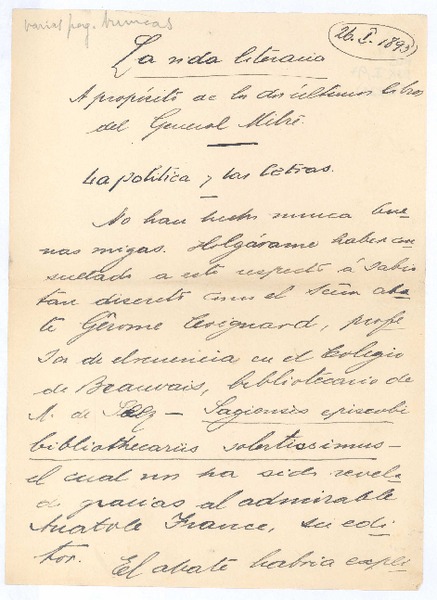 varias pag. truncas
26. I. 1895
La vida literaria
A propósito de los dos últimos libros
del General Mitre
La política y las letras.
No han hecho nunca bue-
nas migas. Holgárame haber con
sultado a este respecto á sabio
tan discreto como el Señor aba-
te Gêrome Coignard, profe
sor de elocuencia en el Colegio
de Beauvais, bibliotecario de
M. de Séez – Sagiensis episcopi
bibliothecarius solertissimus –
el cual nos ha sido revela-
do gracias al admirable
Anatole France, su edi
tor. El abate habría expli